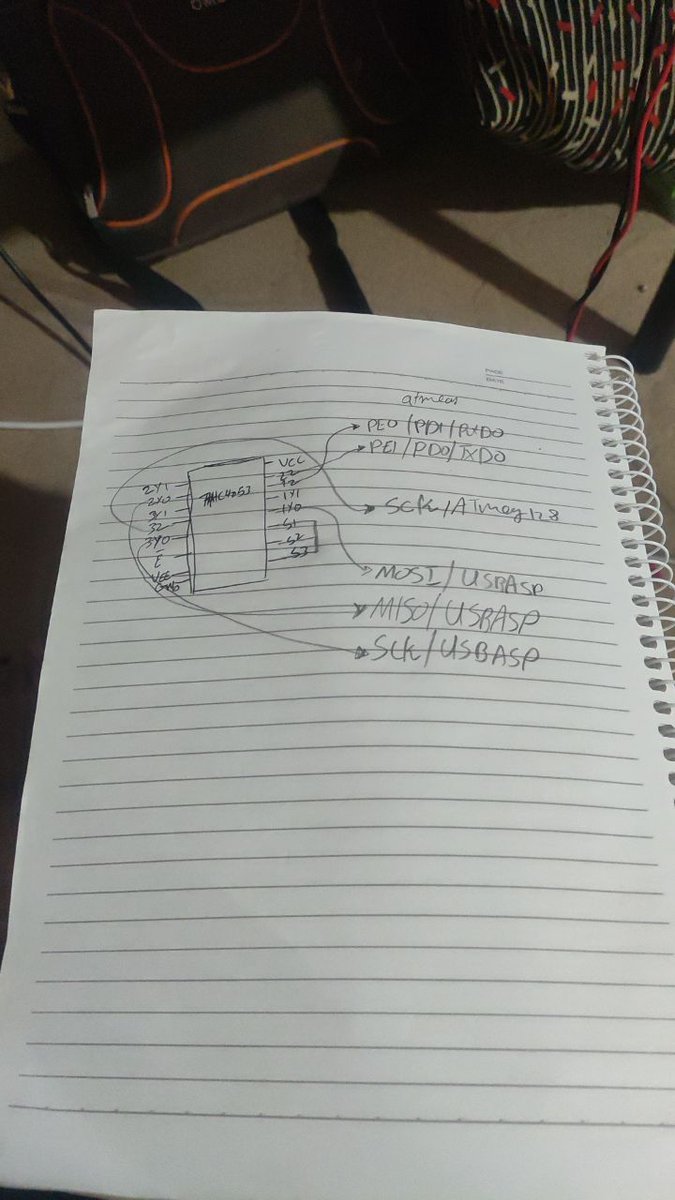 PAGE
DATE
atmeas
PE0/PDI/RXD0
PE1/PDO/TXD0
SCK/ATmeg128
MOSI/USBASP
MISO/USBASP
SCK/USBASP
VCC
1Y1
1Y0
S1
S2
S3
2Y1
2Y0
3Y1
3Z
3Y0
E
VEE
GND